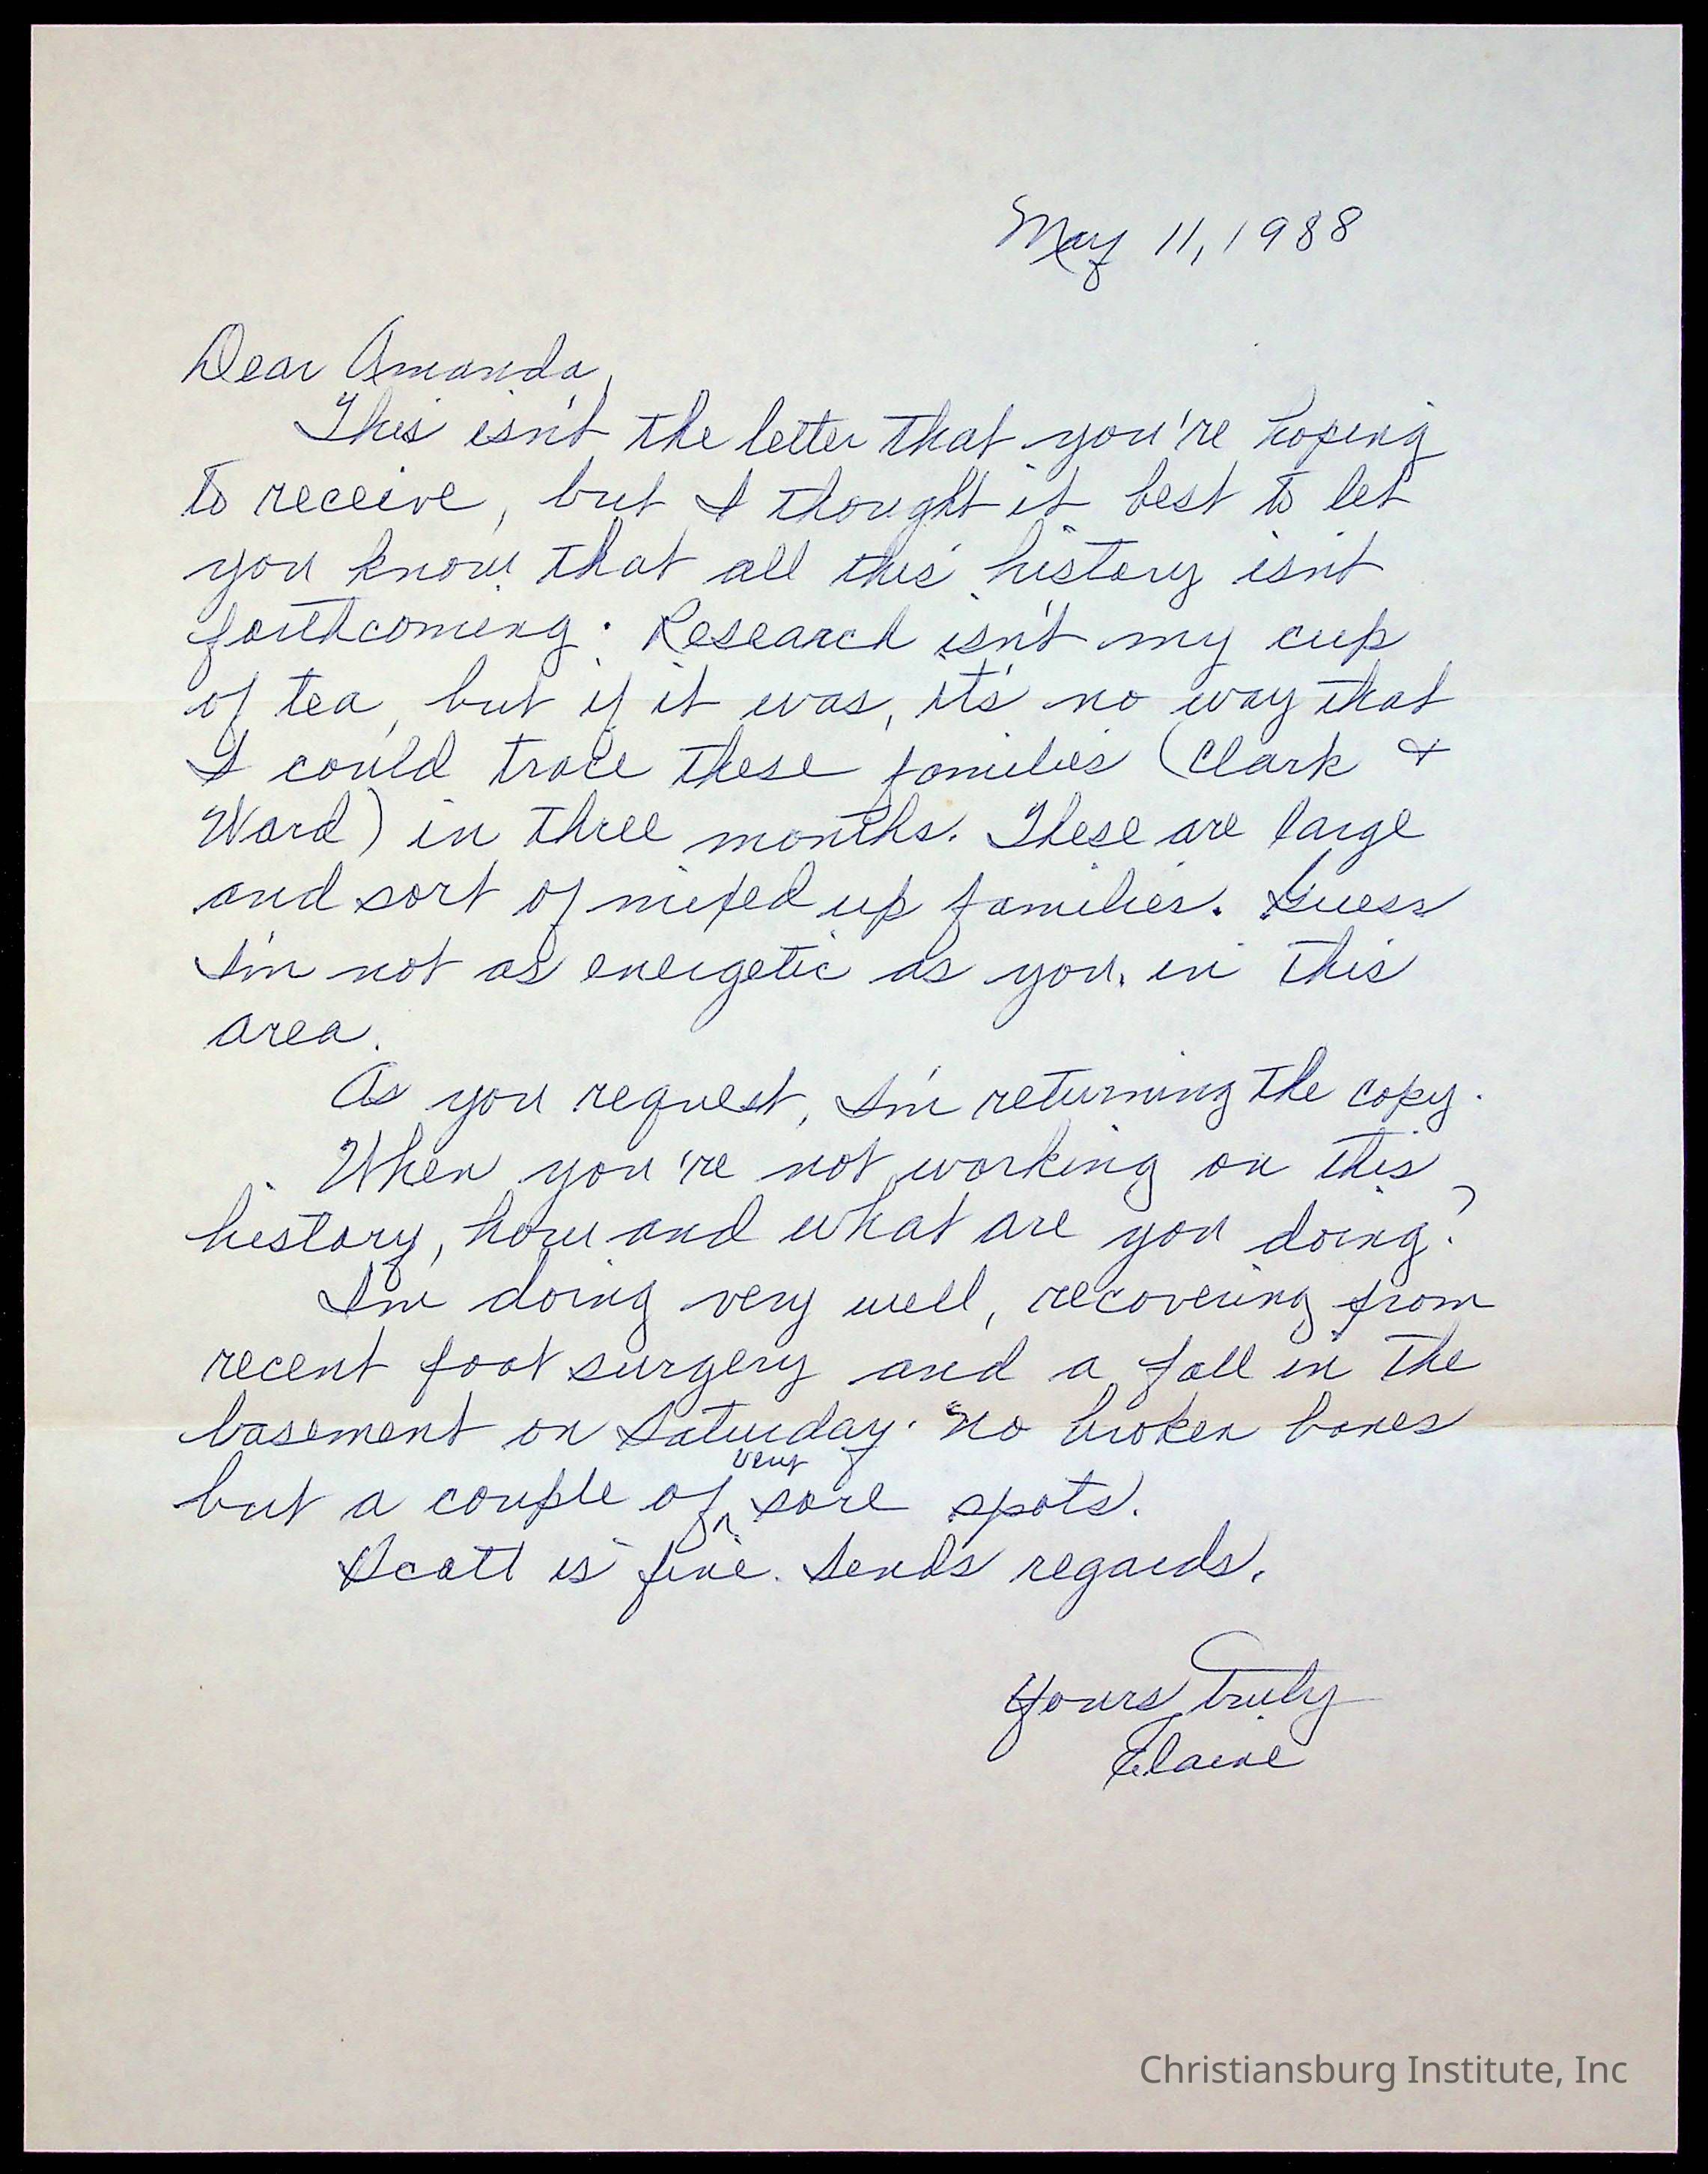 May 11, 1988
Dear Amanda,
This isn't the letter that you're hoping
to receive, but I thought it best to let
you know that all this history isn't
forthcoming. Research isn't my cup
of tea, but if it was, it's no way that
I could trace these families (Clark &
Ward) in three months. These are large
and sort of mixed up families. Guess
I'm not as energetic as you, in this
area.
As you request, I'm returning the copy.
When you're not working on this
history, how and what are you doing?
I'm doing very well, recovering from
recent foot surgery and a fall in the
basement on Saturday. No broken bones
but a couple of very sore spots.
Scott is fine. Sends regards.
Yours Truly
Elaine
Christiansburg Institute, Inc